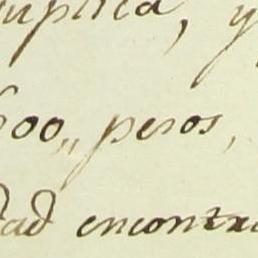 suplica, y
600,, pesos,
dad encontra